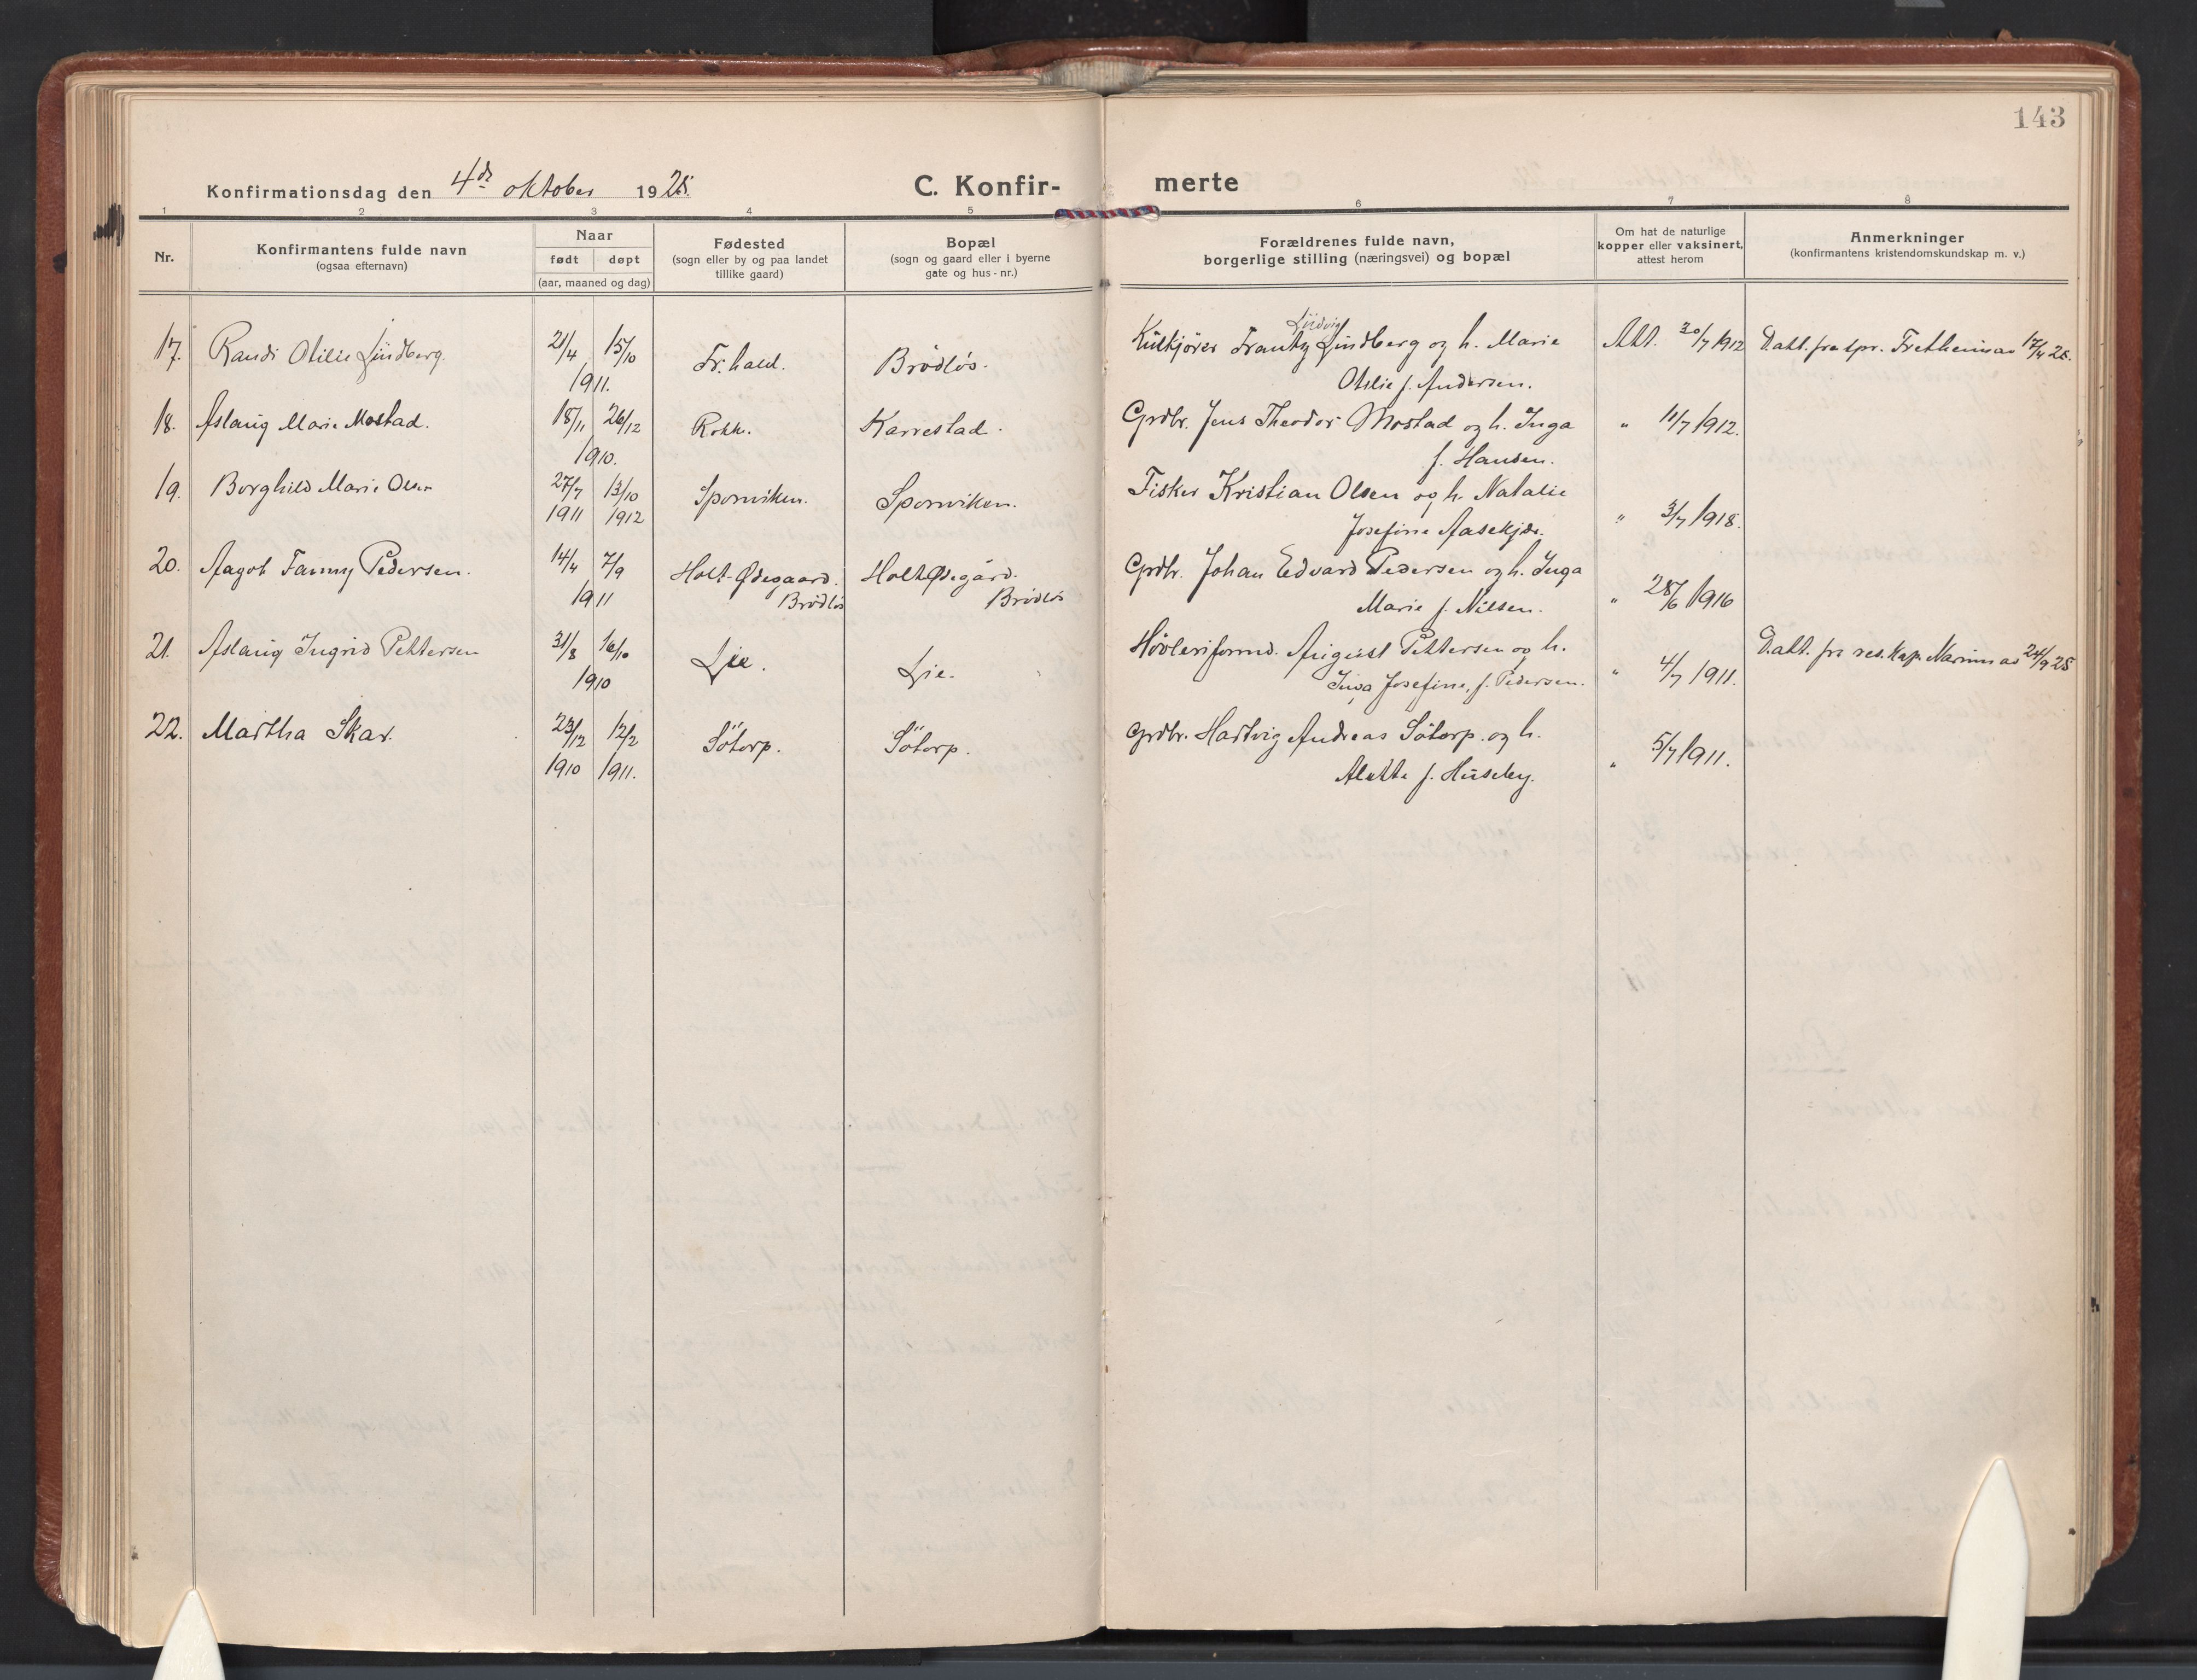 143
Konfirmationsdag den 4de oktober 1925.
C. Konfir-
merte
1 2 3 4 5 6 7 8
Nr.
Konfirmantens fulde navn
(ogsaa efternavn)
Naar
født døpt
(aar, maaned og dag)
Fødested
(sogn eller by og paa landet
tillike gaard)
Bopæl
(sogn og gaard eller i byerne
gate og hus-nr.)
Forældrenes fulde navn,
borgerlige stilling (næringsvei) og bopæl
Om hat de naturlige
kopper eller vaksinert,
attest herom
Anmerkninger
(konfirmantens kristendomskundskap m. v.)
Ludvig
17. Randi Otilie Lundberg. 21/4 15/10 Fr.hald. Brödlös. Kulkjører Frantz Lundberg og h. Marie Att. 30/7 1912 D.att. fra spr. Fretheim as 17/4 25.
1911. Otilie f. Andersen.
18. Aslaug Marie Mostad. 18/11 26/12 Rokke. Karrestad. Grdbr. Jens Theodor Mostad og h. Inga " 11/7 1912.
1910. f. Hansen.
19. Borghild Marie Olsen 27/7 13/10 Sponviken. Sponviken. Fisker Kristian Olsen og h. Natalie
1911 1912 Josefine Aasekjær. " 3/7 1918.
20. Aagot Fanny Pedersen. 14/4 7/9 Holt-Ødegaard. Holt Ødegård. Grdbr. Johan Edvard Pedersen og h. Inga
1911 Brödlös Brödlös Marie f. Nilsen. " 28/6 1916
21. Aslaug Ingrid Pettersen 31/8 16/10 Lie. Lie. Høvleriformd. August Pettersen og h. D.att. fra res.kap. Narum as 24/9 25
1910 Inga Josefine, f. Pedersen. " 4/7 1911.
22. Martha Skar. 23/12 12/2 Sötorp. Sötorp. Grdbr. Hartvig Andreas Sötorp og h.
1910 1911. Alette f. Huseby. " 5/7 1911.